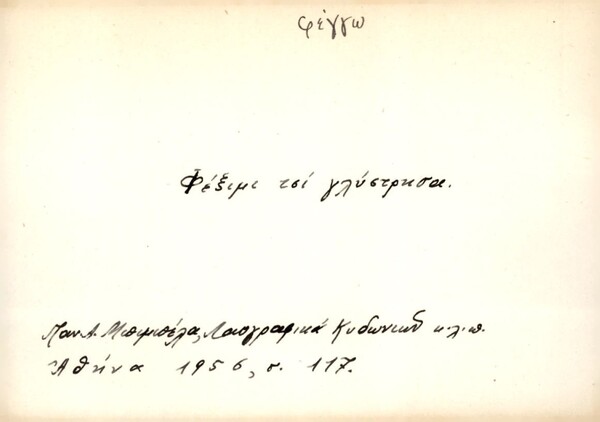 φέγγω
Φέξιμι τσί γλύστρησα.
Παν. Λ. Μπιμπέλα, Λαογραφικά Κυδωνιῶν κ.λ.π.
Ἀθήνα 1956, σ. 117.